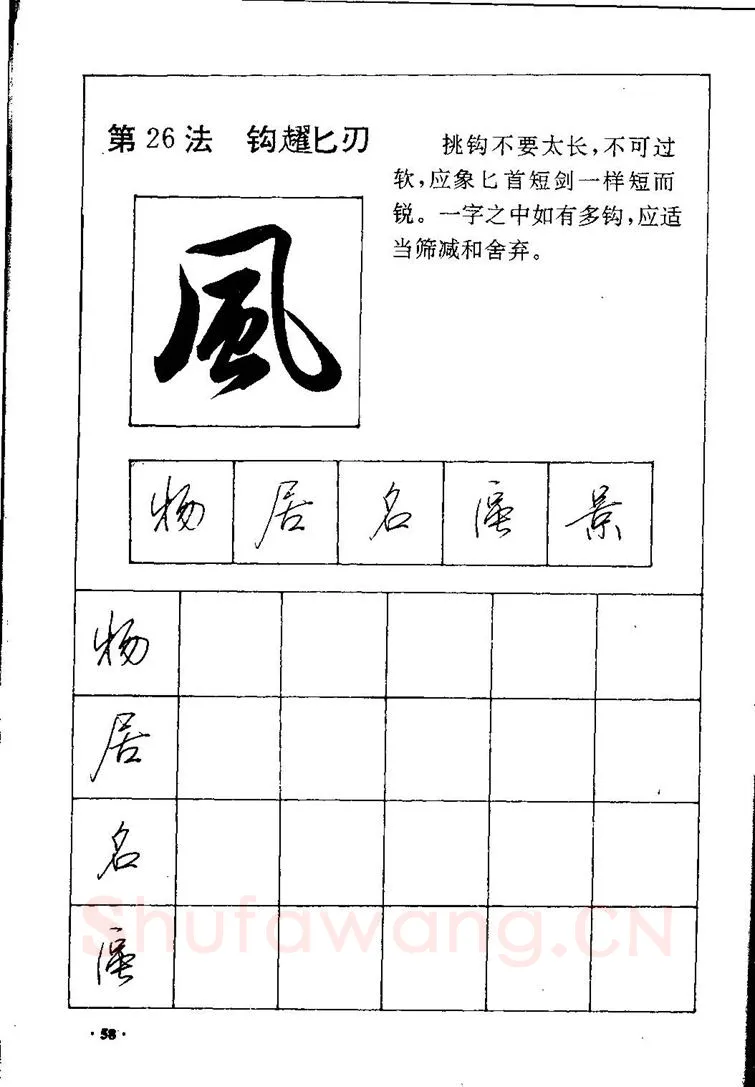 第26法 钩趯匕刃
挑钩不要太长，不可过
软，应象匕首短剑一样短而
锐。一字之中如有多钩，应适
当筛减和舍弃。
風
物 居 名 葆 景
物
居
名
Shufawang.CN
·58·